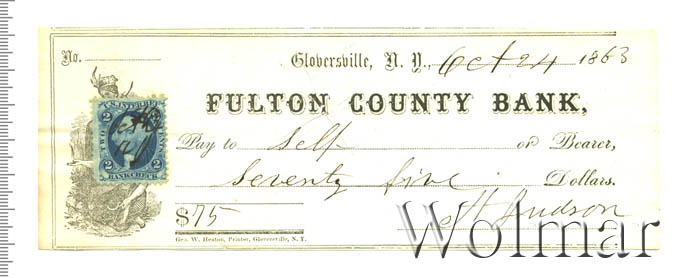 No.
Gloversville, N. Y., Oct 24 1863
FULTON COUNTY BANK,
U.S. INTER. REV.
2 2
TWO CENTS
2 2
BANK CHECK
Pay to Self or Bearer,
Seventy five Dollars.
$75 Hudson
Geo. W. Heaton, Printer, Gloversville, N. Y.
Wolmar